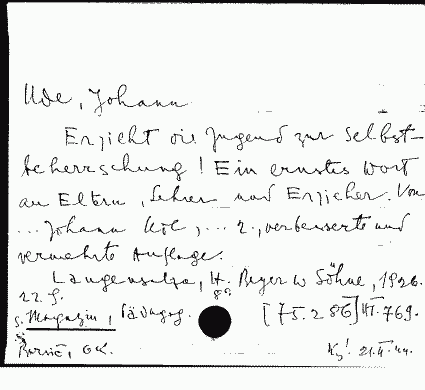 Ude, Johann
Erzieht die Jugend zur Selbst-
beherrschung! Ein ernstes Wort
an Eltern, Lehrer und Erzieher. Von
... Johann Ude, ... 2., verbesserte und
vermehrte Auflage.
Langensalza, H. Beyer u Söhne, 1926.
22 S. 8°
s. Magazin, Pädagog. [75.286] III. 769.
21.II.44.